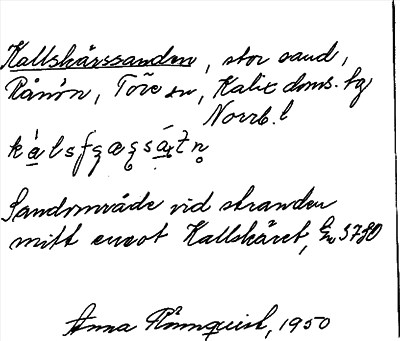 Kallskärssanden, stor sand,
Rånön, Töre sn, Kalix doms. hg
Norrb. l
Sandområde vid stranden
mitt emot Kallskäret, En 3780
Anna Rönnquist, 1950